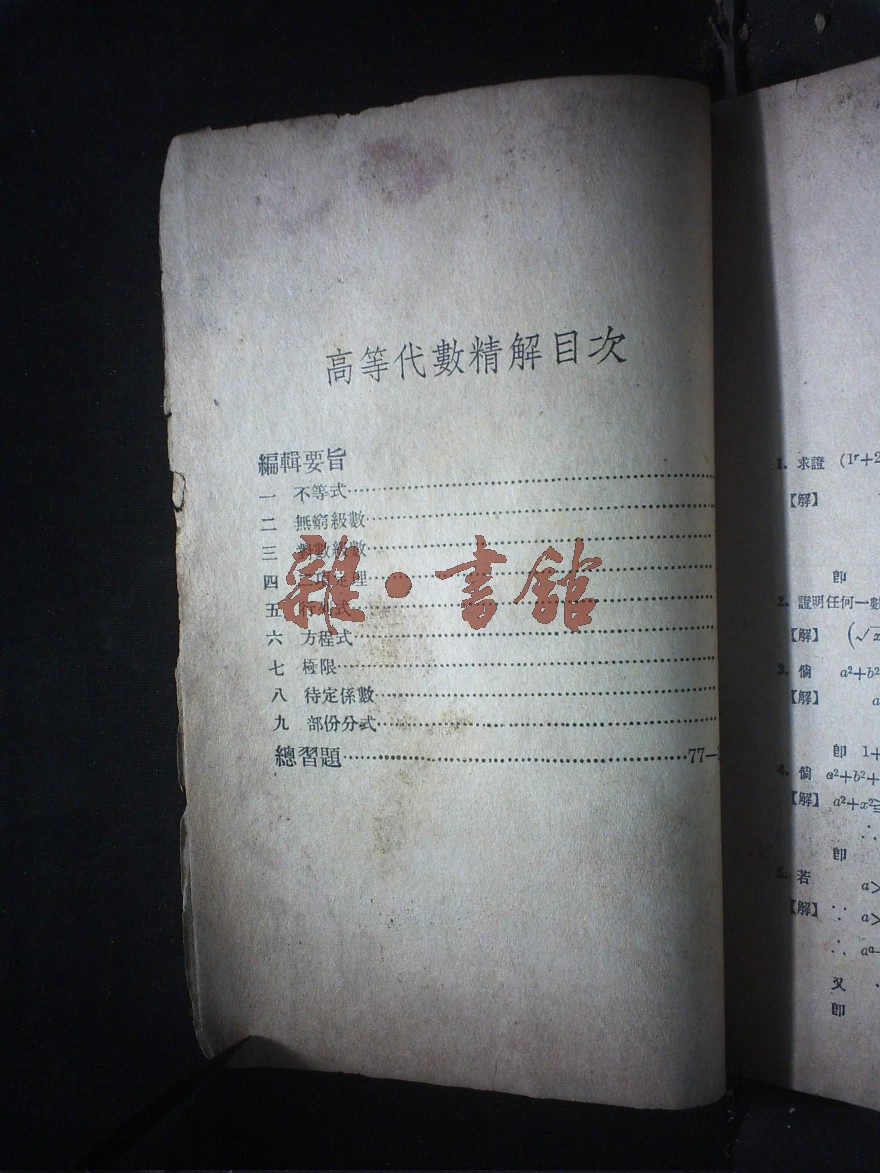 高等代數精解目次
編輯要旨
一 不等式
二 無窮級數
三 對數級數
四 二項定理
五 行列式
六 方程式
七 極限
八 待定係數
九 部份分式
總習題 77—
雜·書館
1. 求證 (1ʳ+2
【解】
即
2. 證明任何一數
【解】 (√x
3. 倘 a²+b²
【解】 a
即 1+
4. 倘 a²+b²+
【解】 a²+x²≧
∴
即
5. 若 a>
【解】 ∵ a>
∴ aᵃ-
又
即